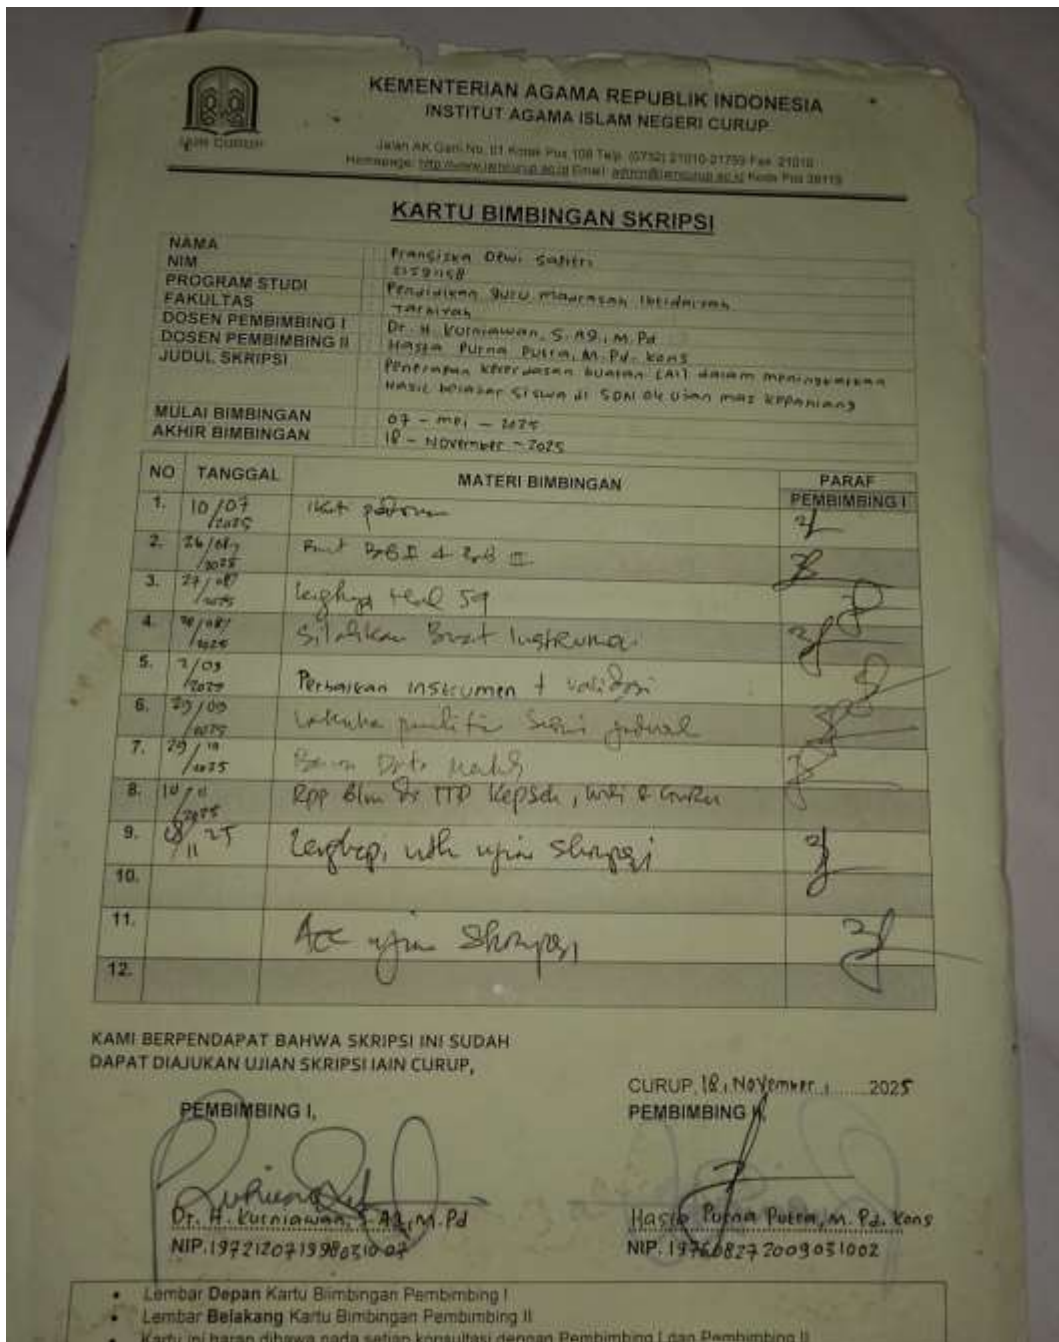 IAIN CURUP
KEMENTERIAN AGAMA REPUBLIK INDONESIA
INSTITUT AGAMA ISLAM NEGERI CURUP
Jalan AK Gani No. 01 Kotak Pos 108 Telp. (0732) 21010-21759 Fax 21010
Homepage: http://www.iaincurup.ac.id Email: admin@iaincurup.ac.id Kode Pos 39119
KARTU BIMBINGAN SKRIPSI
NAMA : Fransiska Dewi Safitri
NIM :
PROGRAM STUDI : Pendidikan guru madrasah Ibtidaiyah
FAKULTAS : Tarbiyah
DOSEN PEMBIMBING I : Dr. H. Kurniawan, S.Ag, M.Pd
DOSEN PEMBIMBING II : Hasta Purna Putra, M.Pd. Kons
JUDUL SKRIPSI : Penerapan kecerdasan buatan (AI) dalam meningkatkan
Hasil belajar siswa di SDN ujan mas kepahiang
MULAI BIMBINGAN : 07 - mei - 2025
AKHIR BIMBINGAN : 18 - November - 2025
NO TANGGAL MATERI BIMBINGAN PARAF PEMBIMBING I
1. 10/07/2025 ikut pedoman
2. 26/08/2025 Buat Bab II + Bab III
3. 27/08/2025
4. /08/2025 Silahkan Buat Instrumen
5. 2/09/2025 Perbaikan instrumen + validasi
6. 29/09/2025 jadwal
7. 29/10/2025 Data
8. 10/11/2025 Rpp Blm TTD Kepsek, & Guru
9. 18/11 25 Lengkapi utk ujian skripsi
10.
11. Acc ujian Skripsi
12.
KAMI BERPENDAPAT BAHWA SKRIPSI INI SUDAH
DAPAT DIAJUKAN UJIAN SKRIPSI IAIN CURUP,
CURUP, 18, November, 2025
PEMBIMBING I, PEMBIMBING II,
Dr. H. Kurniawan, S.Ag, M.Pd Hasta Purna Putra, M.Pd. Kons
NIP. 197212071998031007 NIP. 197608272009031002
• Lembar Depan Kartu Biimbingan Pembimbing I
• Lembar Belakang Kartu Bimbingan Pembimbing II
• Kartu ini harap dibawa pada setiap konsultasi dengan Pembimbing I dan Pembimbing II